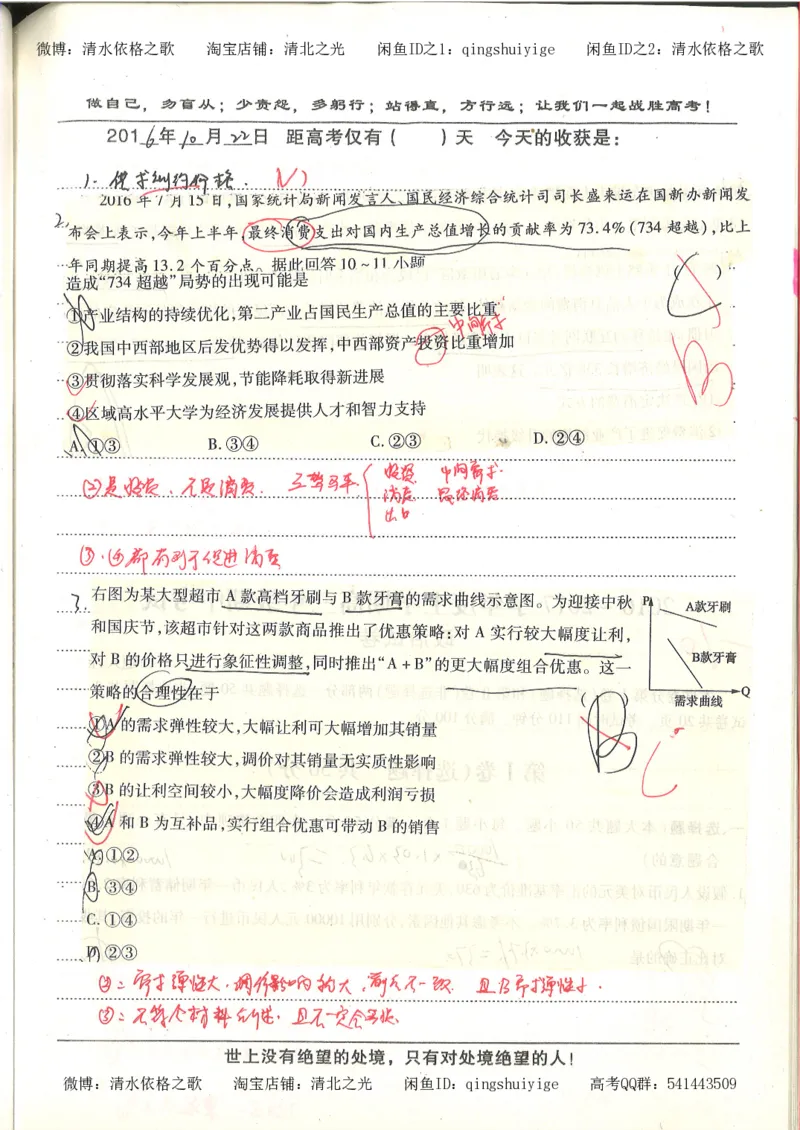 微博：清水依格之歌 淘宝店铺：清北之光 闲鱼ID之1：qingshuiyige 闲鱼ID之2：清水依格之歌
做自己，勿盲从；少责怨，多躬行；站得直，方行远；让我们一起战胜高考！
2016年10月22日 距高考仅有（ ）天 今天的收获是：
1.供求制约价格.
2.
2016年7月15日,国家统计局新闻发言人、国民经济综合统计司司长盛来运在国新办新闻发
布会上表示,今年上半年,最终消费支出对国内生产总值增长的贡献率为73.4%(734超越),比上
年同期提高13.2个百分点。据此回答10~11小题
造成“734超越”局势的出现可能是 ( )
C
B
①产业结构的持续优化,第二产业占国民生产总值的主要比重
中间需求
②我国中西部地区后发优势得以发挥,中西部资产投资比重增加
③贯彻落实科学发展观,节能降耗取得新进展
④区域高水平大学为经济发展提供人才和智力支持
A.①③ B.③④ C.②③ D.②④
②是投资、不是消费. 三驾马车
投资 中间需求.
消费
出口
③.④都有利于促进消费
3.
右图为某大型超市A款高档牙刷与B款牙膏的需求曲线示意图。为迎接中秋
和国庆节,该超市针对这两款商品推出了优惠策略:对A实行较大幅度让利,
对B的价格只进行象征性调整,同时推出“A+B”的更大幅度组合优惠。这一
策略的合理性在于 ( )
P
A款牙刷
B款牙膏
Q
需求曲线
B
C
①A的需求弹性较大,大幅让利可大幅增加其销量
②B的需求弹性较大,调价对其销量无实质性影响
③B的让利空间较小,大幅度降价会造成利润亏损
④A和B为互补品,实行组合优惠可带动B的销售
A.①②
B.③④
C.①④
D.②③
②：需求弹性大，调价影响较大，前后不一致. 且B需求弹性小.
世上没有绝望的处境，只有对处境绝望的人！
微博：清水依格之歌 淘宝店铺：清北之光 闲鱼ID：qingshuiyige 高考QQ群：541443509